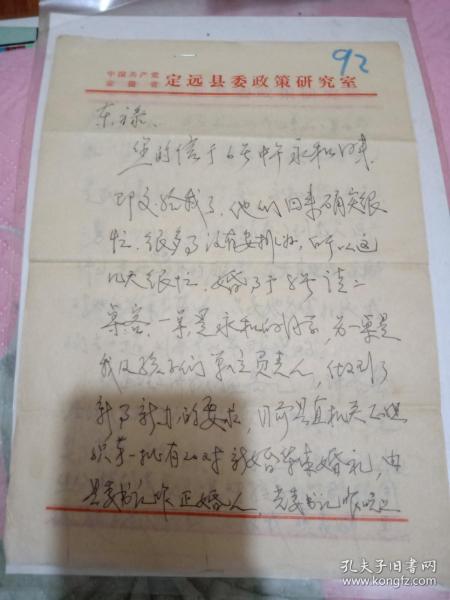 92
中国共产党
安徽省 定远县委政策研究室
东禄:
您的信于6号中午永和回来
即交给我了，他们回来确实很
忙，很多事没有安排好，所以这
几天很忙，婚事于8号请二
桌客，一桌是永和的同学，另一桌是
我及孩子们的单位负责人，做到了
新事新办的要求，目前县直机关正组
织第一批有20对新婚集体婚礼，由
县委书记作正婚人，党委书记
孔夫子旧书网
www.kongfz.com